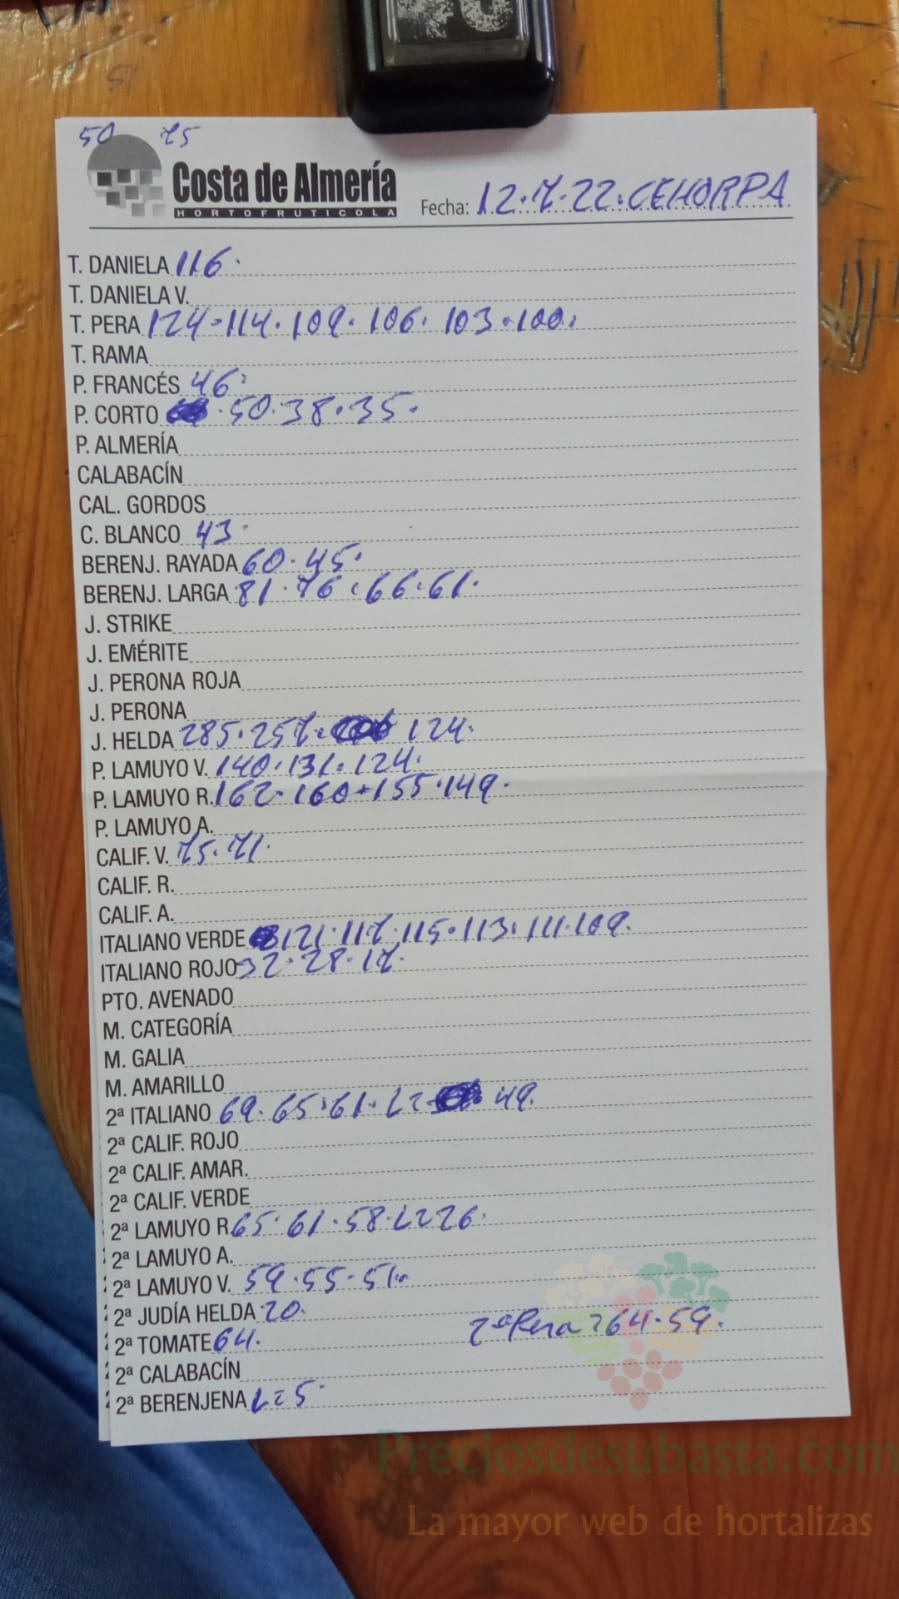 50 75
Costa de Almería
HORTOFRUTICOLA
Fecha: 12.7.22. CEHORPA
T. DANIELA 116.
T. DANIELA V.
T. PERA 124-114.109.106.103.100.
T. RAMA
P. FRANCÉS 46.
P. CORTO 50.38.35.
P. ALMERÍA
CALABACÍN
CAL. GORDOS
C. BLANCO 43.
BERENJ. RAYADA 60.45.
BERENJ. LARGA 81.76.66.61.
J. STRIKE
J. EMÉRITE
J. PERONA ROJA
J. PERONA
J. HELDA 285.257. 124.
P. LAMUYO V. 140.131.124.
P. LAMUYO R. 162-160.155.149.
P. LAMUYO A.
CALIF. V. 75.71.
CALIF. R.
CALIF. A.
ITALIANO VERDE 121.117.115.113.111.109.
ITALIANO ROJO 32.28.17.
PTO. AVENADO
M. CATEGORÍA
M. GALIA
M. AMARILLO
2ª ITALIANO 69.65.61. 49.
2ª CALIF. ROJO
2ª CALIF. AMAR.
2ª CALIF. VERDE
2ª LAMUYO R 65.61.58. 26.
2ª LAMUYO A.
2ª LAMUYO V. 59.55.51.
2ª JUDÍA HELDA 20.
2ª TOMATE 64. 2ª Pera 64.59.
2ª CALABACÍN
2ª BERENJENA 5.
Preciosdesubasta.com
La mayor web de hortalizas